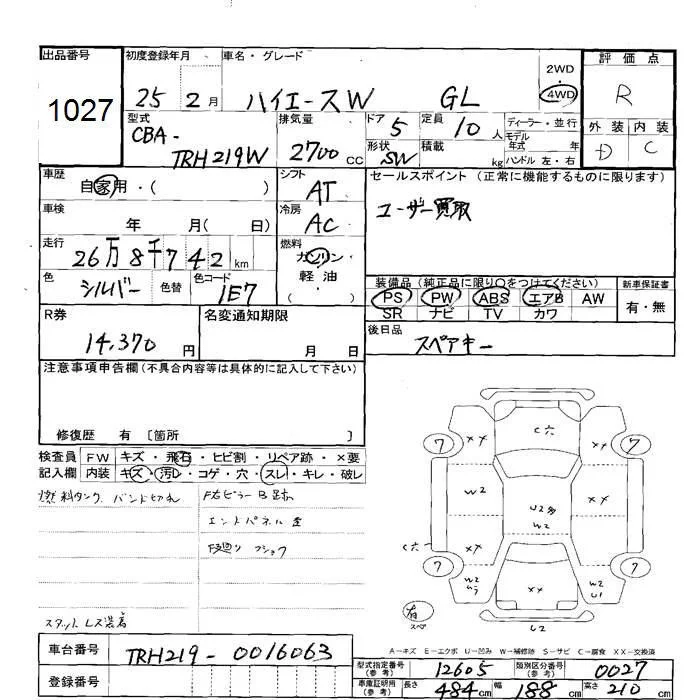 出品番号
1027
初度登録年月
25 2月
車名・グレード
ハイエースW GL
2WD
・
4WD
評価点
R
外装 内装
D C
型式
CBA-
TRH219W
排気量
2700 CC
ドア 5
形状 SW
定員 10 人
積載 kg
ディーラー・並行
モデル
年式 年
ハンドル 左・右
車歴
自家用・( )
シフト
AT
セールスポイント (正常に機能するものに限ります)
ユーザー買取
車検
年 月( 日)
冷房
AC
走行
26万8千742 km
燃料
ガソリン
軽油
( )
色
シルバー 色替
色コード
1E7
装備品 (純正品に限り○をつけてください)
PS PW ABS エアB AW
SR ナビ TV カワ
新車保証書
有・無
R券
14,370 円
名変通知期限
月 日
後日品
スペアキー
注意事項申告欄 (不具合内容等は具体的に記入して下さい)
修復歴 有 〔箇所 〕
検査員
記入欄
FW キズ・飛石・ヒビ割・リペア跡・×要
内装 キズ・汚レ・コゲ・穴・スレ・キレ・破レ
燃料タンク バンド切れ
F右ピラーB 足跡
エンドパネル 歪
F廻り フショク
スタットレス装着
C穴
7 XX XX 7
W2 U2多 W2 XX
C穴 XX XX
7 XX 7
W2 W2 U1
有
スペ
U2
A－キズ E－エクボ U－凹み W－補修跡 S－サビ C－腐食 XX－交換済
車台番号
TRH219-0016063
登録番号
型式指定番号
(参考)
12605
類別区分番号
(参考)
0027
車庫証明用
(参考)
長さ 484 cm 幅 188 cm 高さ 210 cm